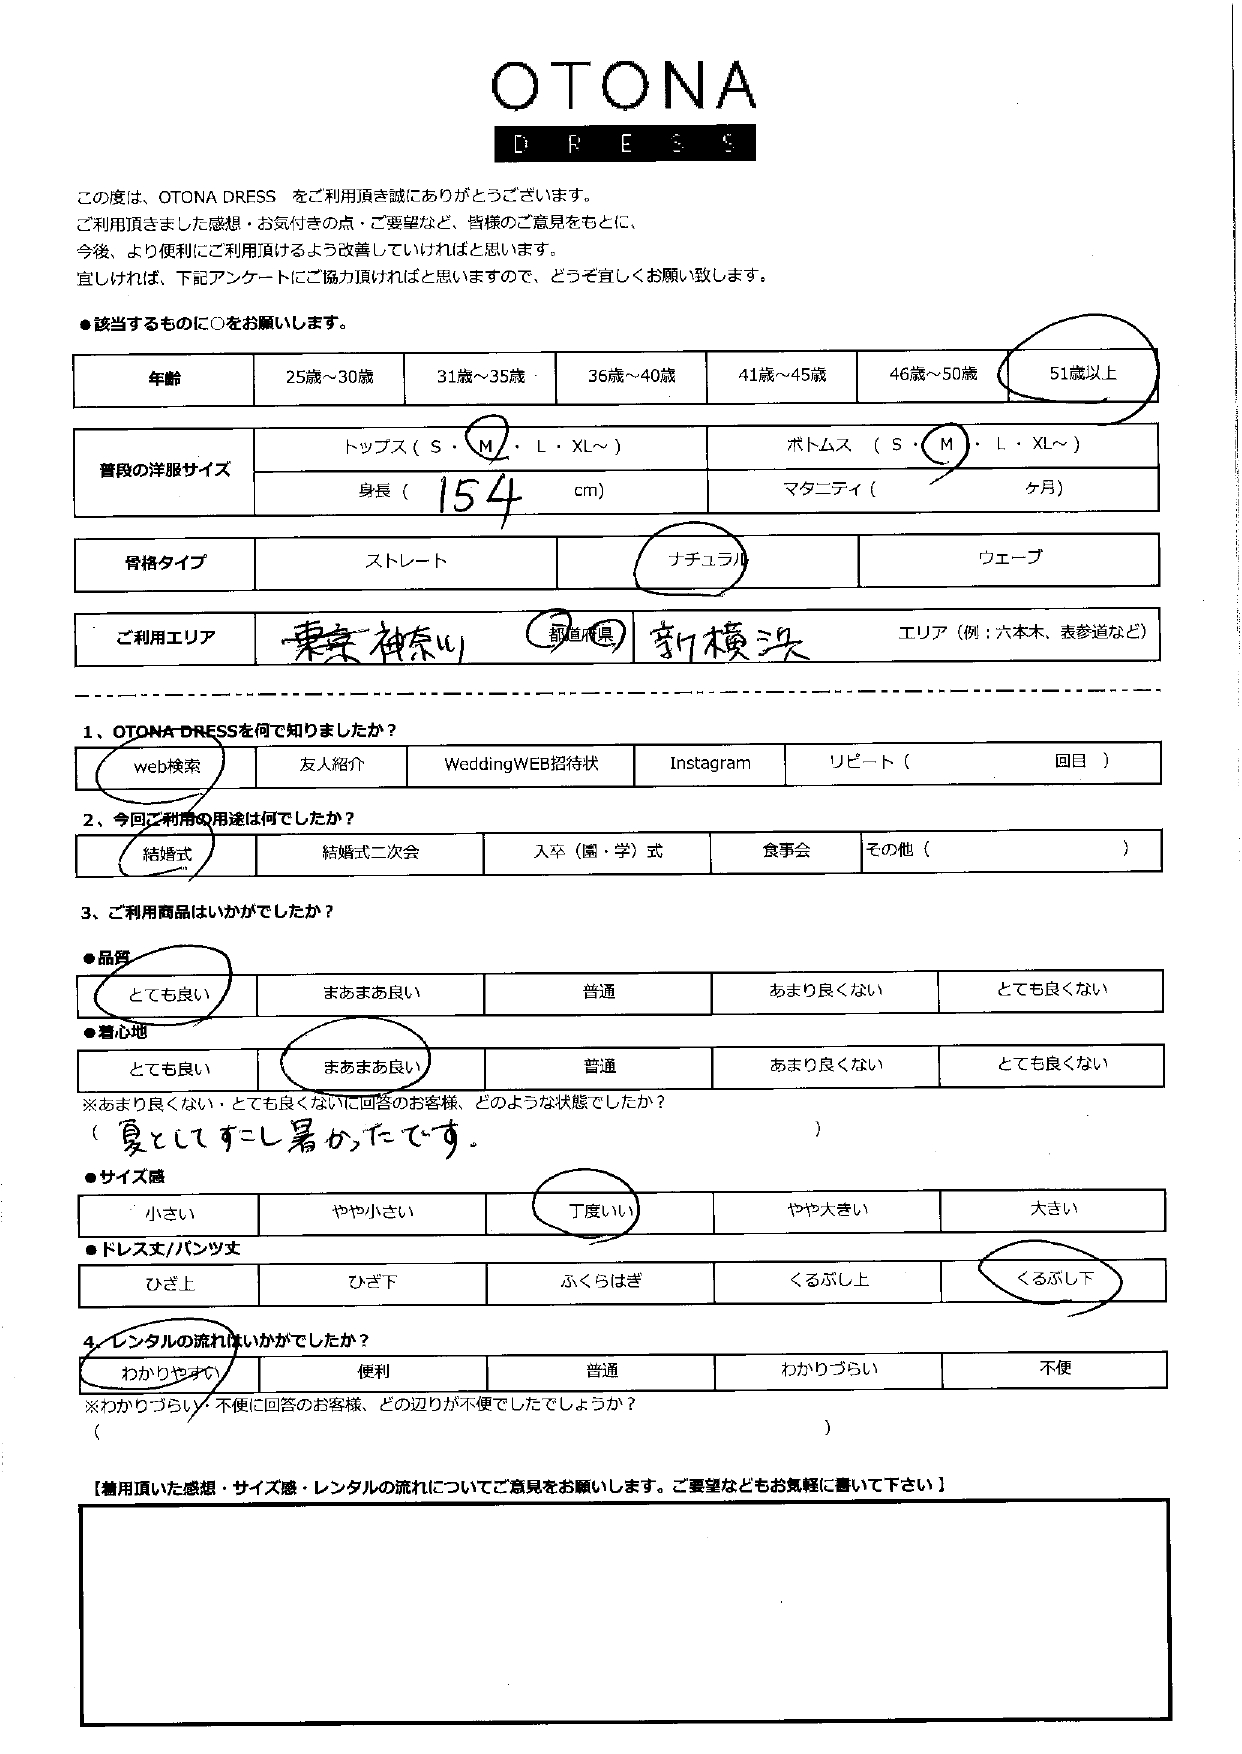 OTONA
DRESS
この度は、OTONA DRESS をご利用頂き誠にありがとうございます。
ご利用頂きました感想・お気付きの点・ご要望など、皆様のご意見をもとに、
今後、より便利にご利用頂けるよう改善していければと思います。
宜しければ、下記アンケートにご協力頂ければと思いますので、どうぞ宜しくお願い致します。
●該当するものに○をお願いします。
年齢 25歳～30歳 31歳～35歳 36歳～40歳 41歳～45歳 46歳～50歳 51歳以上
普段の洋服サイズ トップス ( S ・ M ・ L ・ XL～ ) ボトムス ( S ・ M ・ L ・ XL～ )
身長 ( 154 cm) マタニティ ( ケ月)
骨格タイプ ストレート ナチュラル ウェーブ
ご利用エリア 東京 神奈川 都道府県 新横浜 エリア（例：六本木、表参道など）
1、OTONA DRESSを何で知りましたか？
web検索 友人紹介 WeddingWEB招待状 Instagram リピート ( 回目 )
2、今回ご利用の用途は何でしたか？
結婚式 結婚式二次会 入卒（園・学）式 食事会 その他 ( )
3、ご利用商品はいかがでしたか？
●品質
とても良い まあまあ良い 普通 あまり良くない とても良くない
●着心地
とても良い まあまあ良い 普通 あまり良くない とても良くない
※あまり良くない・とても良くないに回答のお客様、どのような状態でしたか？
( 夏としてすこし暑かったです。 )
●サイズ感
小さい やや小さい 丁度いい やや大きい 大きい
●ドレス丈/パンツ丈
ひざ上 ひざ下 ふくらはぎ くるぶし上 くるぶし下
4、レンタルの流れはいかがでしたか？
わかりやすい 便利 普通 わかりづらい 不便
※わかりづらい・不便に回答のお客様、どの辺りが不便でしたでしょうか？
( )
【着用頂いた感想・サイズ感・レンタルの流れについてご意見をお願いします。ご要望などもお気軽に書いて下さい】